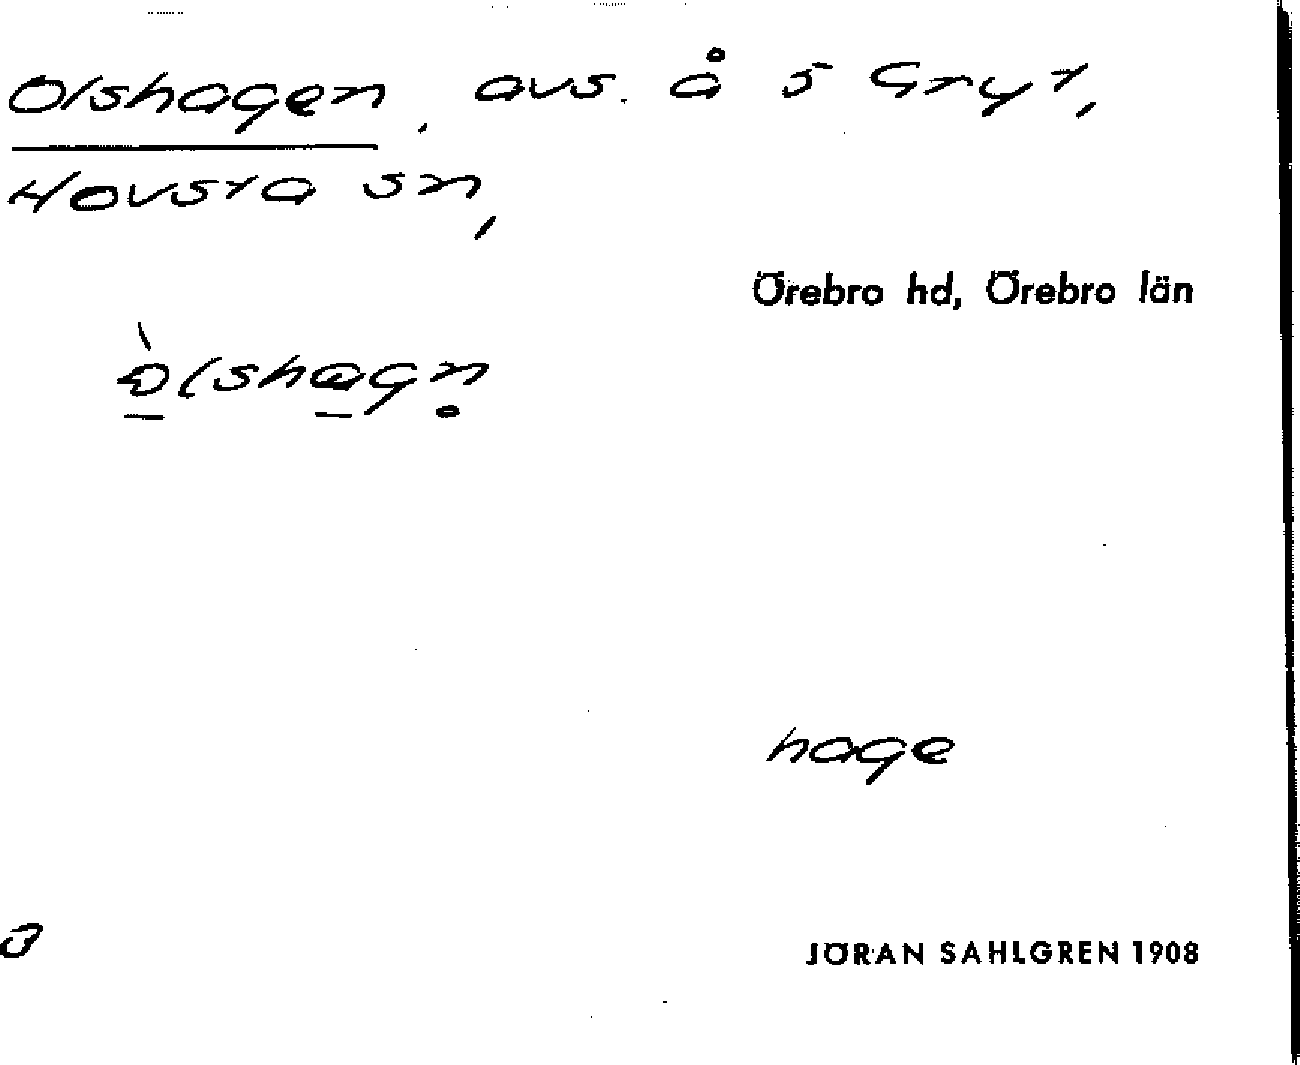 Olshagen, avs. å S Gryt,
Hovsta sn,
Örebro hd, Örebro län
hage
JÖRAN SAHLGREN 1908